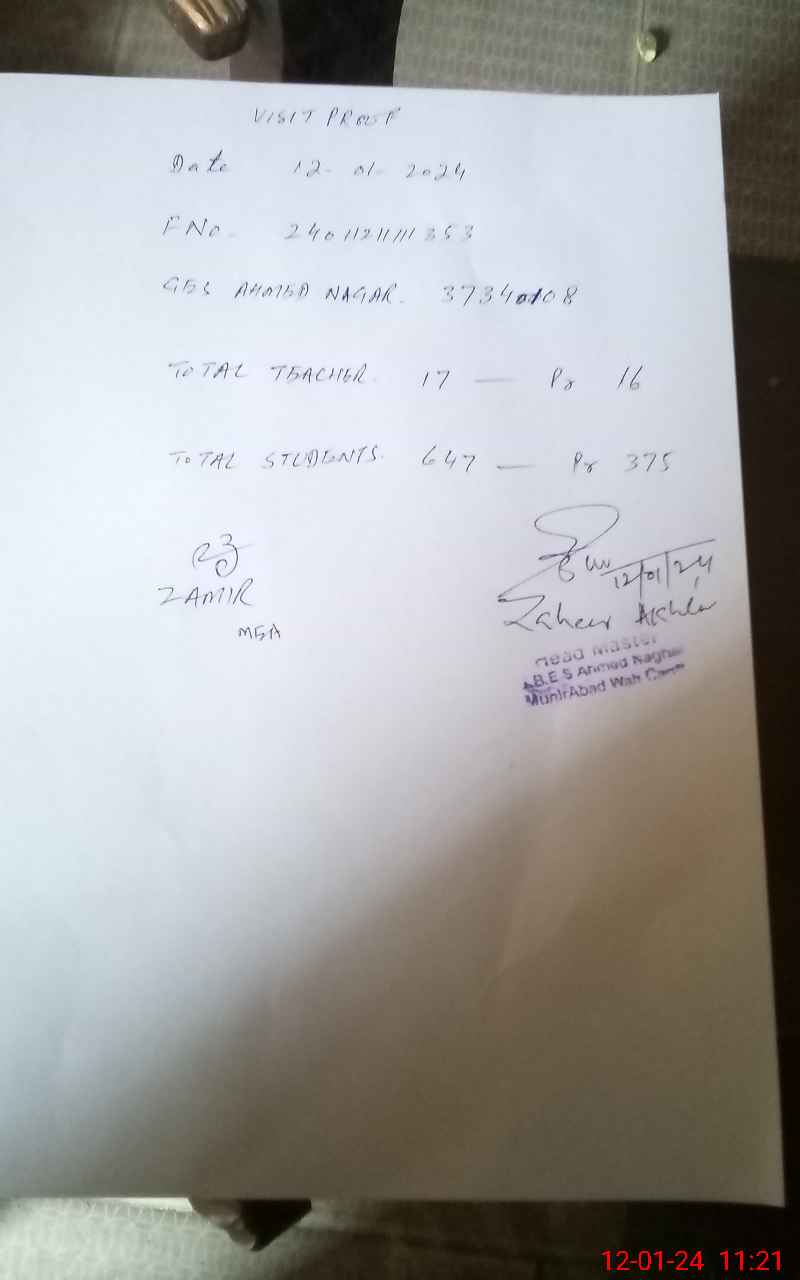 VISIT PROOF
Date 12-01-2024
F No. 240112111353
GES AHMED NAGAR. 37340108
TOTAL TEACHER. 17 — Pr 16
TOTAL STUDENTS. 647 — Pr 375
12/01/24
ZAMIR
Zaheer Akhtar
MEA
Head Master
B.E.S Ahmed Naghar
MunirAbad Wah Cantt
12-01-24 11:21